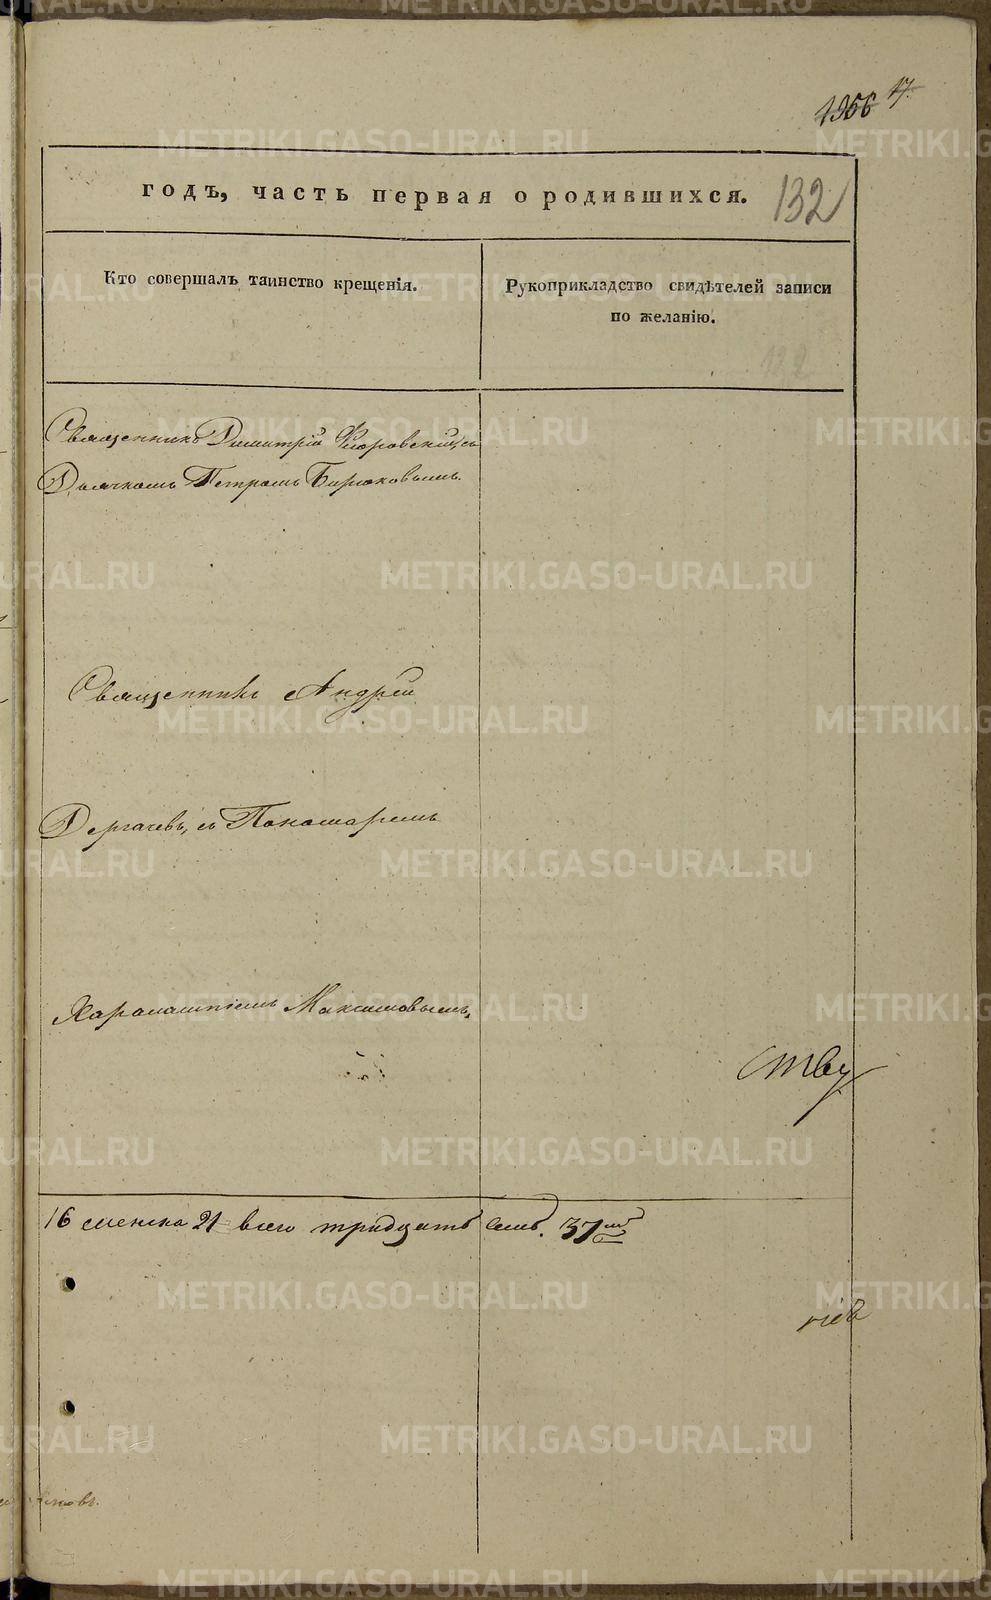 1956 17.
годъ, часть первая о родившихся. 132
Кто совершалъ таинство крещенія.
Рукоприкладство свидѣтелей записи
по желанію.
Священникъ Димитрій Флоровскій, съ
Дьячкомъ Петромъ Бирюковымъ.
Священникъ Андрей
Дергачевъ, съ Пономаремъ
Харалампіемъ Максимовымъ.
ству
16 женска 21 всего тридцать семь. 37
METRIKI.GASO-URAL.RU